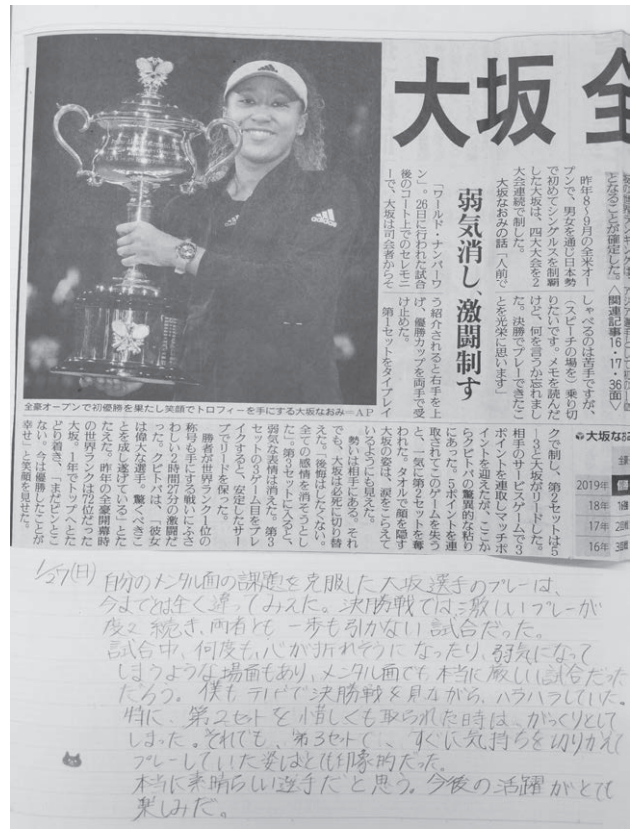 大坂 全
となることが確定した。〈関連記事16・17・36面〉
昨年8〜9月の全米オー
プンで、男女を通じ日本勢
で初めてシングルスを制覇
した大坂は、四大大会を2
大会連続で制した。
大坂なおみの話「人前で
しゃべるのは苦手ですが、
（スピーチの場を）乗り切
りたいです。メモを読んだ
けど、何を言うか忘れまし
た。決勝でプレーできたこ
とを光栄に思います」
弱気消し、激闘制す
「ワールド・ナンバーワ
ン」。26日に行われた試合
後のコート上でのセレモニ
ーで、大坂は司会者からそ
う紹介されると右手を上
げ、優勝カップを両手で受
け止めた。
第1セットをタイブレイ
クで制し、第2セットは5
-3と大坂がリードした。
相手のサービスゲームで3
ポイントを連取しマッチポ
イントを迎えたが、ここか
らクビトバの驚異的な粘り
にあった。5ポイントを連
取されてこのゲームを失う
と、一気に第2セットを奪
われた。タオルで顔を隠す
大坂の姿は、涙をこらえて
いるようにも見えた。
勢いは相手にある。それ
でも、大坂は必死に切り替
えた。「後悔はしたくない。
全ての感情を消そうとし
た」。第3セットに入ると、
弱気な表情は消えた。第3
セットの3ゲーム目をブレ
イクすると、安定したサー
ブでリードを保った。
勝者が世界ランク1位の
称号も手にする戦いにふさ
わしい2時間27分の激闘だ
った。クビトバは、「彼女
は偉大な選手。驚くべきこ
とを成し遂げている」とた
たえた。昨年の全豪開幕時
の世界ランクは72位だった
大坂。1年でトップへとた
どり着き、「まだピンとこ
ない。今は優勝したことが
幸せ」と笑顔を見せた。
全豪オープンで初優勝を果たし笑顔でトロフィーを手にする大坂なおみ＝AP
大坂なお
2019年
18年
17年
16年
1/27(日) 自分のメンタル面の課題を克服した大坂選手のプレーは、
今までとは全く違ってみえた。決勝戦では激しいプレーが
度々続き、両者とも一歩も引かない試合だった。
試合中、何度も、心が折れそうになったり、弱気になって
しまうような場面もあり、メンタル面でも本当に厳しい試合だった
だろう。僕もテレビで決勝戦を見ながら、ハラハラしていた。
特に、第2セットを惜しくも取られた時は、がっくりとして
しまった。それでも、第3セットで、すぐに気持ちを切りかえ
プレーしていた姿はとても印象的だった。
本当に素晴らしい選手だと思う。今後の活躍がとても
楽しみだ。